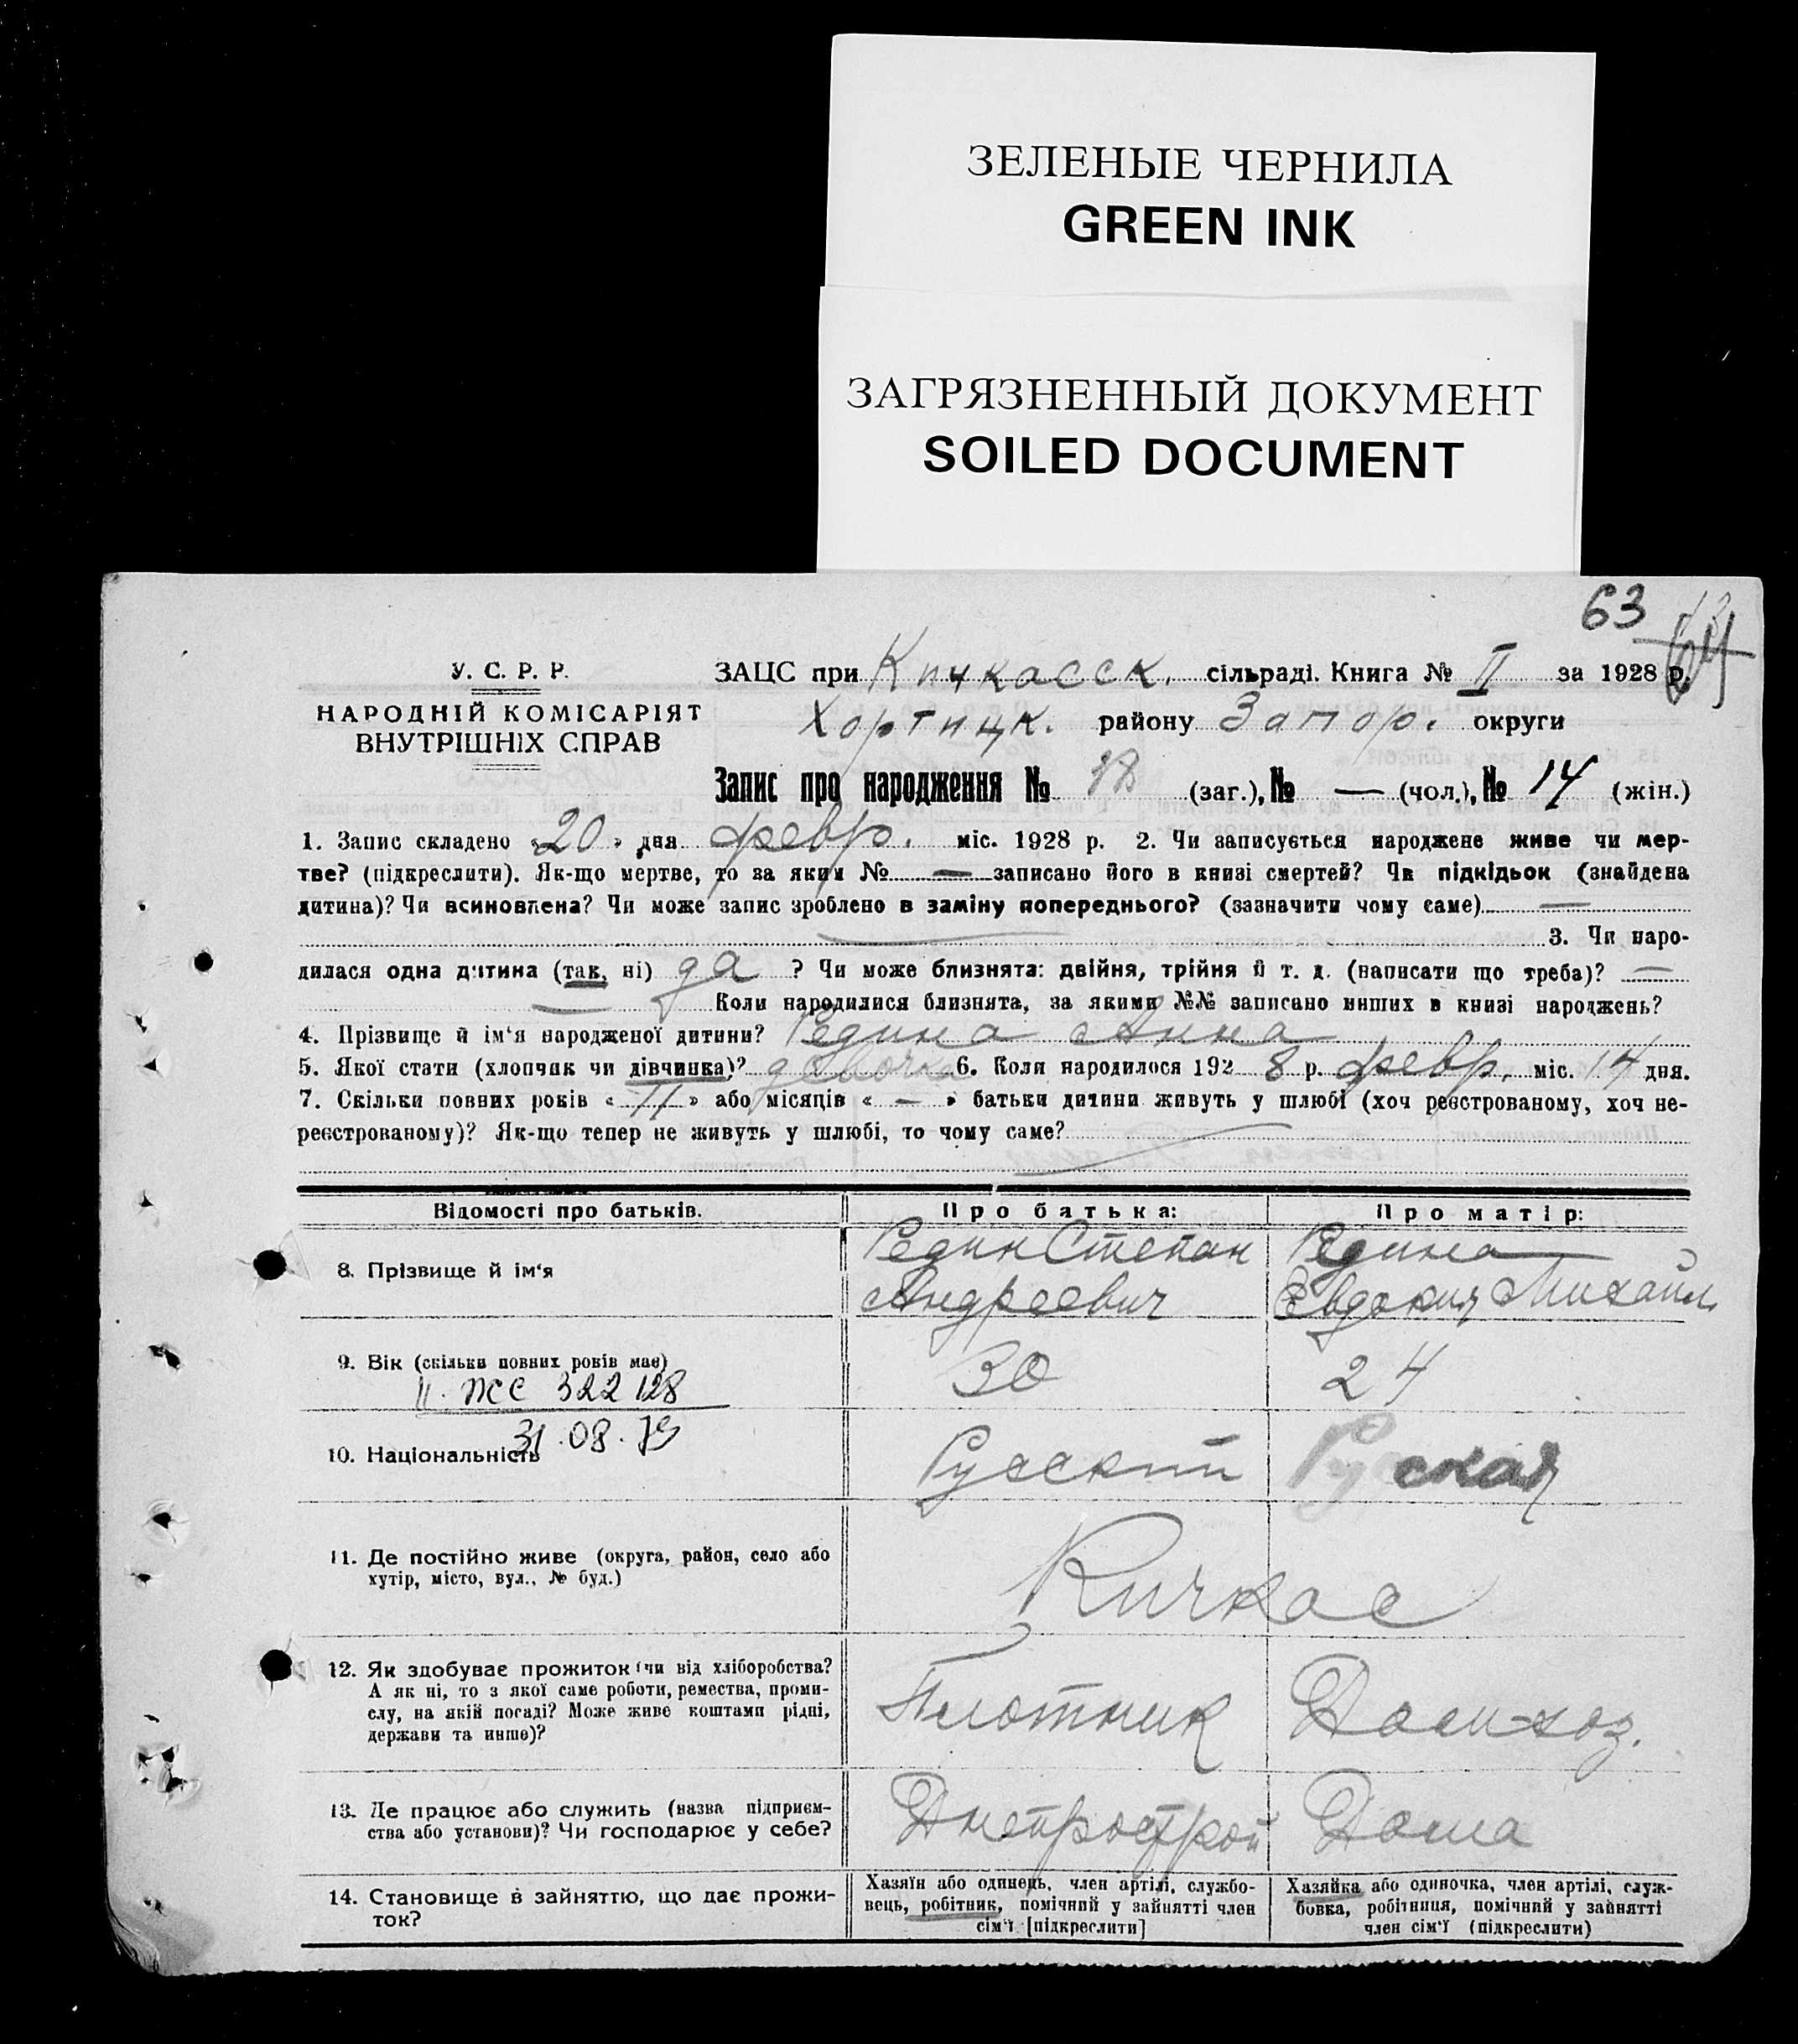 ЗЕЛЕНЫЕ ЧЕРНИЛА
GREEN INK
ЗАГРЯЗНЕННЫЙ ДОКУМЕНТ
SOILED DOCUMENT
63
64
У. С. Р. Р.
НАРОДНІЙ КОМІСАРІЯТ
ВНУТРІШНІХ СПРАВ
ЗАЦС при Кичкасск. сільраді. Книга № II за 1928 р.
Хортицк. району Запор. округи
Запис про народження № 18 (заг.), № — (чол.), № 14 (жін.)
1. Запис складено «20» дня февр. міс. 1928 р. 2. Чи записується народжене живе чи мер-
тве? (підкреслити). Як-що мертве, то за яким № — записано його в книзі смертей? Чи підкідьок (знайдена
дитина)? Чи всиновлена? Чи може запис зроблено в заміну попереднього? (зазначити чому саме) —
3. Чи наро-
дилася одна дитина (так, ні) да ? Чи може близнята: двійня, трійня й т. д. (написати що треба)? —
— Коли народилися близнята, за якими №№ записано инших в книзі народжень?
4. Прізвище й ім‘я народженої дитини? Редина Анна
5. Якої стати (хлопчик чи дівчинка)? девочка 6. Коли народилося 1928 р. февр. міс. 14 дня.
7. Скільки повних років «11» або місяців « — » батьки дитини живуть у шлюбі (хоч реєстрованому, хоч не-
реєстрованому)? Як-що тепер не живуть у шлюбі, то чому саме?
Відомості про батьків.
Про батька:
Про матір:
8. Прізвище й ім‘я
Редин Степан
Андреевич
Редина
Евдокия Михайл
9. Вік (скільки повних років має)
30
24
II. ЖС 322128
31.08.79
10. Національність
Русский
Руская
11. Де постійно живе (округа, район, село або
хутір, місто, вул., № буд.)
Кичкас
12. Як здобуває прожиток (чи від хліборобства?
А як ні, то з якої саме роботи, ремества, проми-
слу, на якій посаді? Може живе коштами рідні,
держави та инше)?
Плотник
Дом-хоз.
13. Де працює або служить (назва підприєм-
ства або установи)? Чи господарює у себе?
Днепрострой
Дома
14. Становище в зайняттю, що дає прожи-
ток?
Хазяїн або одинець, член артілі, службо-
вець, робітник, помічний у зайнятті член
сім‘ї [підкреслити]
Хазяйка або одиночка, член артілі, служ-
бовка, робітниця, помічний у зайнятті
член сім‘ї (підкреслити)